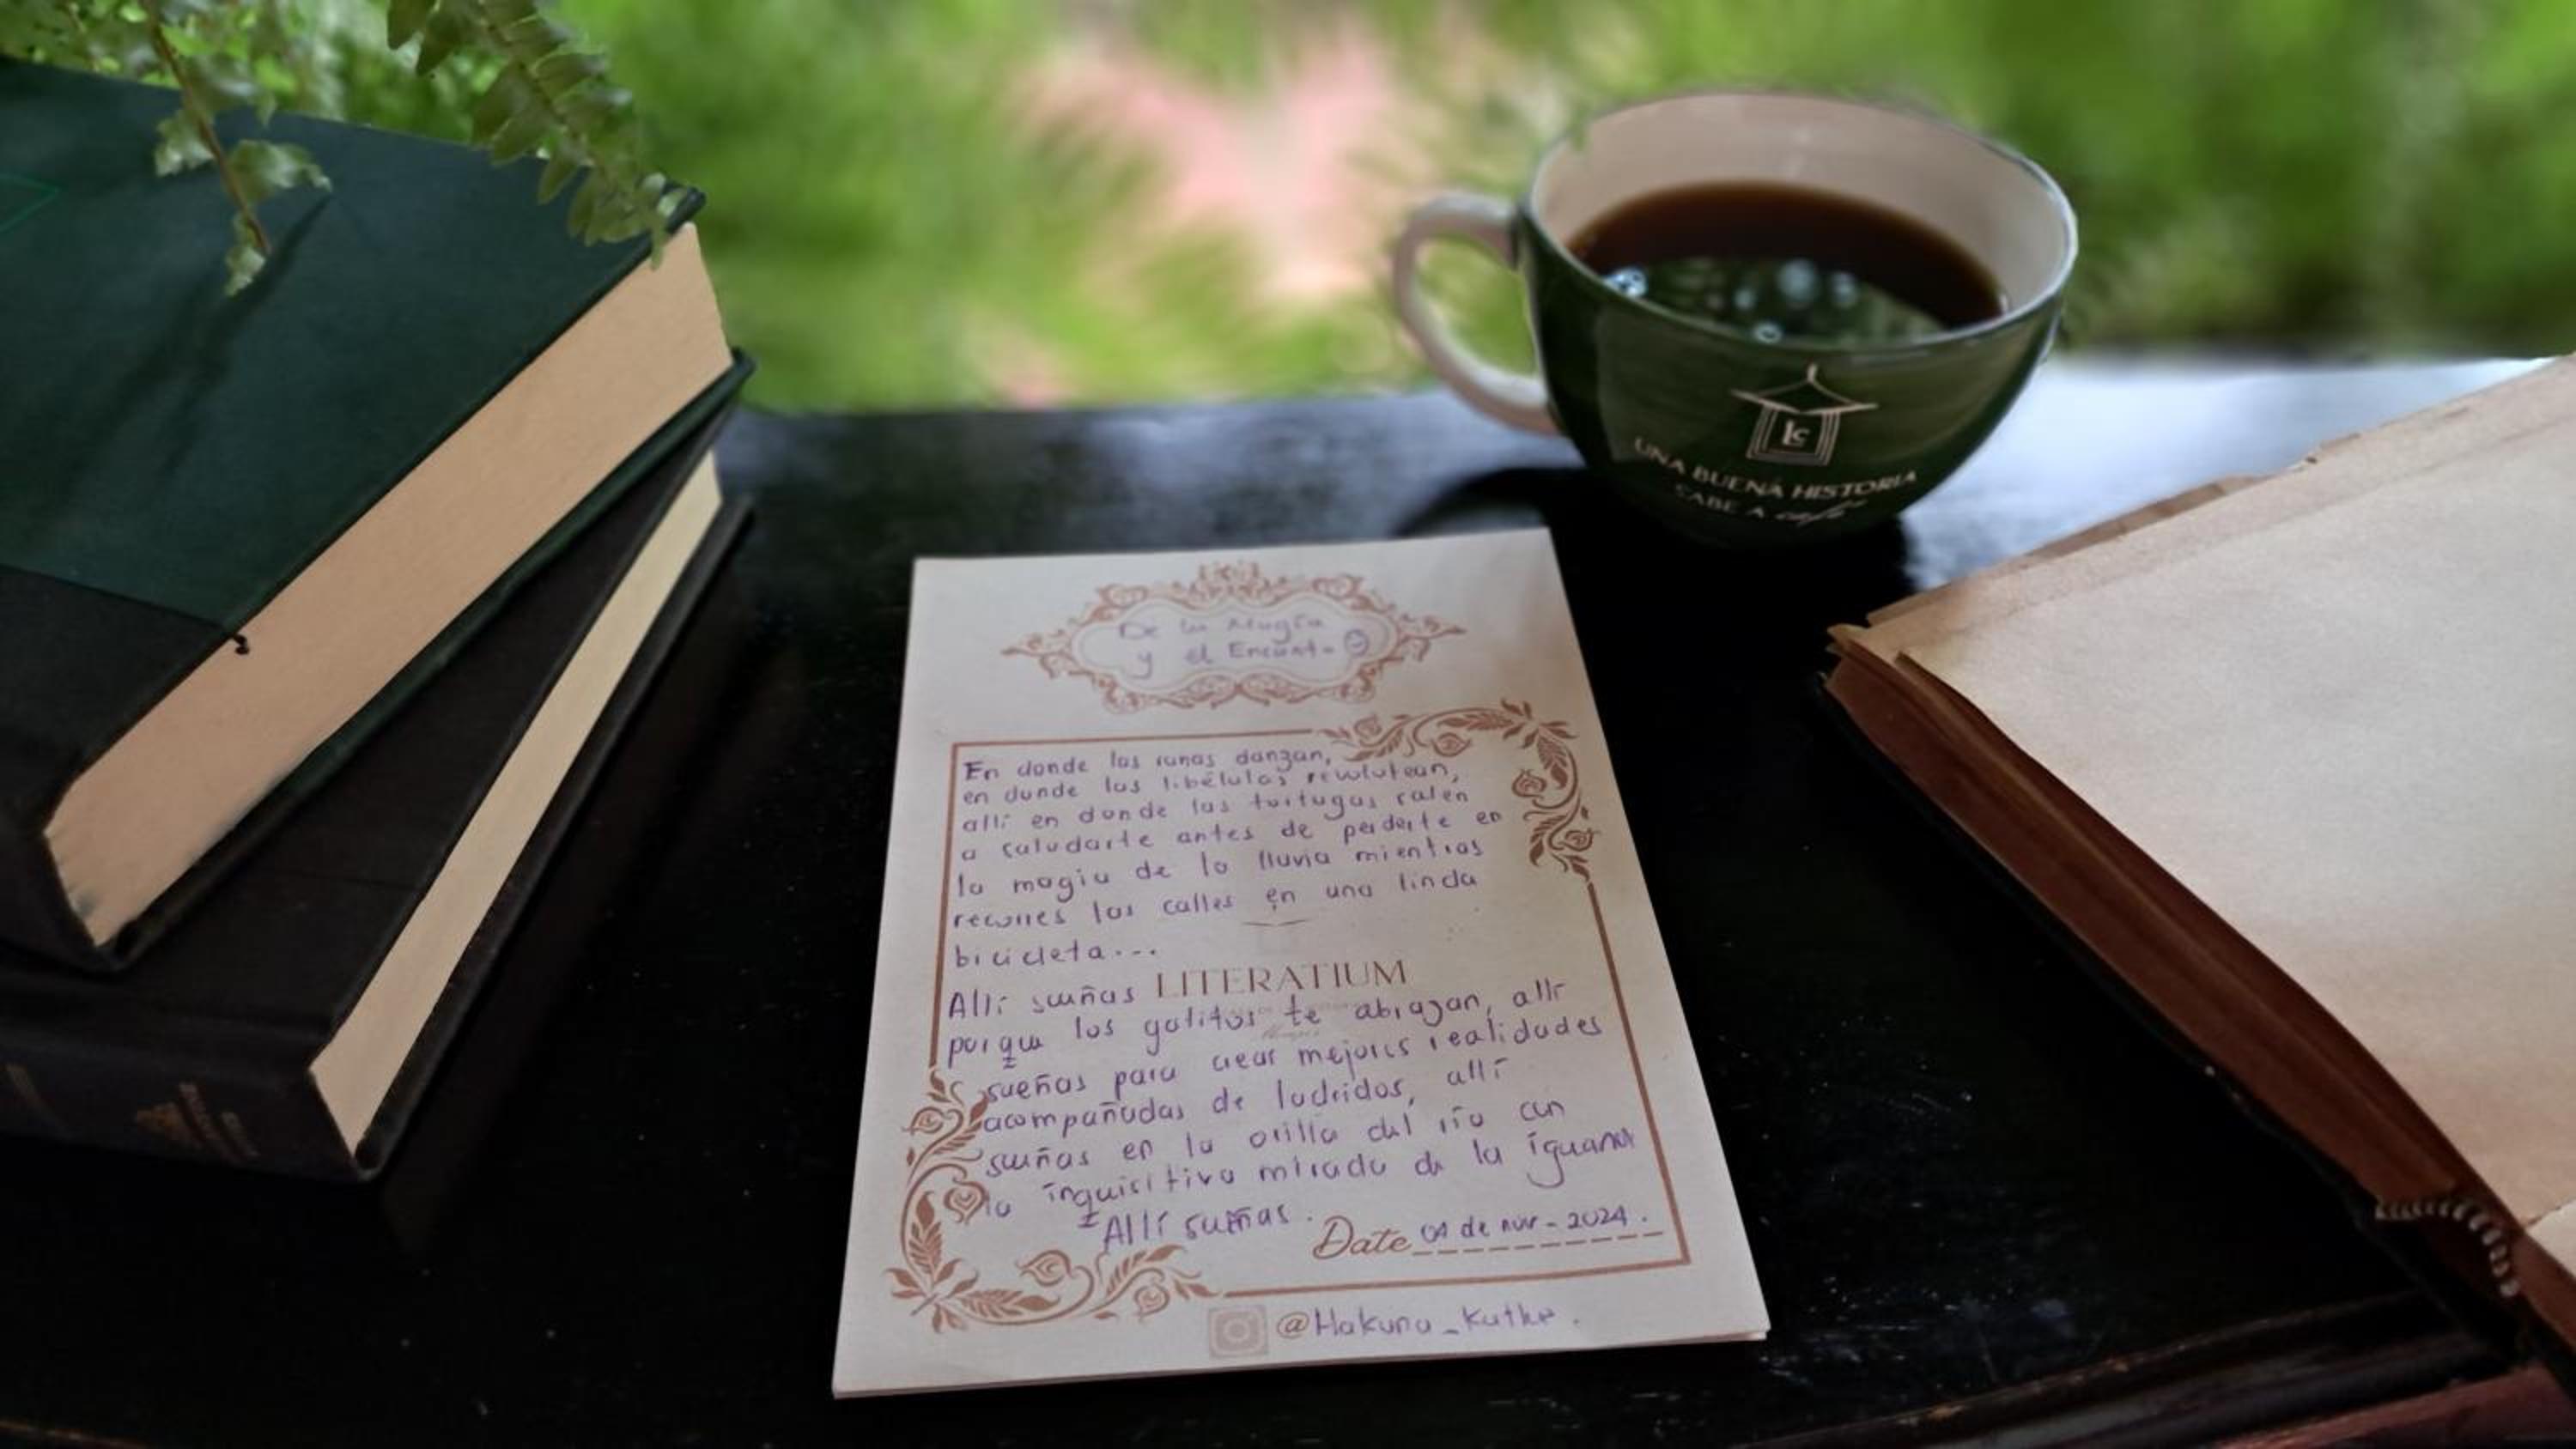 LC
UNA BUENA HISTORIA
SABE A café
De la Magia
y el Encanto
En donde las ranas danzan,
en donde las libélulas revolutean,
allí en donde las tortugas salen
a saludarte antes de perderte en
la magia de la lluvia mientras
recorres las calles en una linda
bicicleta...
LITERATIUM
Allí sueñas
porque los gatitos te abrazan, allí
sueñas para crear mejores realidades
acompañadas de ladridos, allí
sueñas en la orilla del río con
la inquisitiva mirada de la iguana
Allí sueñas.
Date 01 de nov - 2024.
@Hakuna_